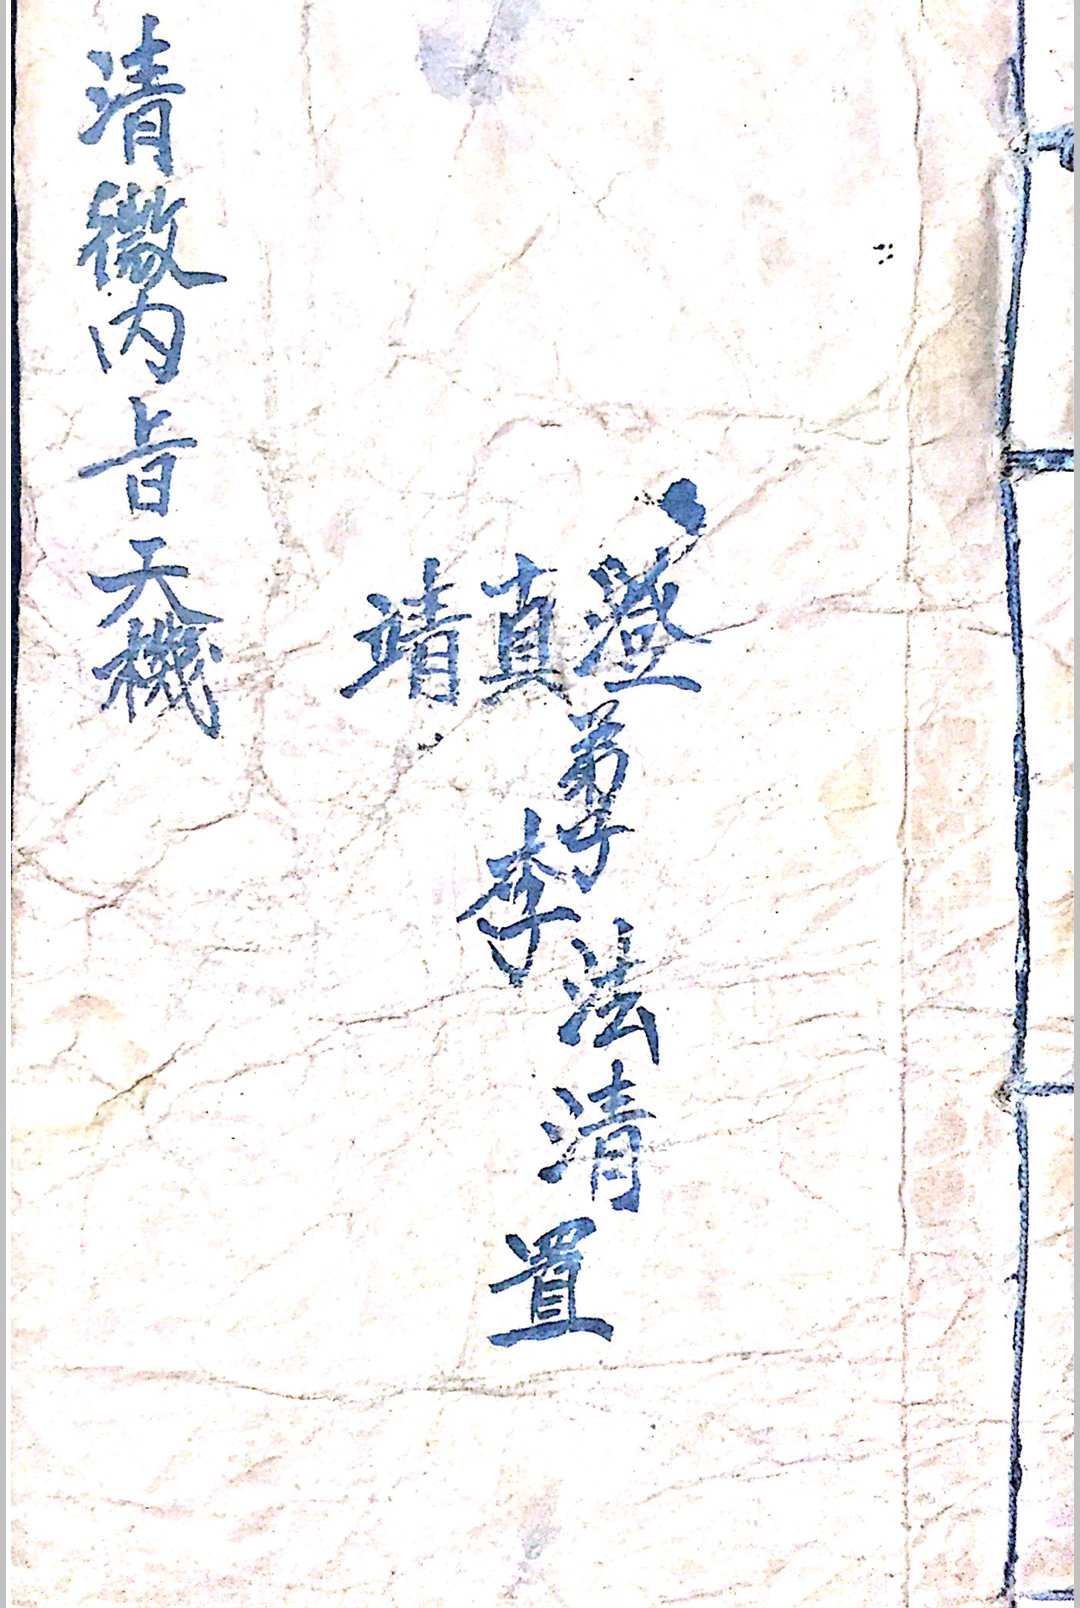 澄真靖
弟子李法清置
清微内㫖天機